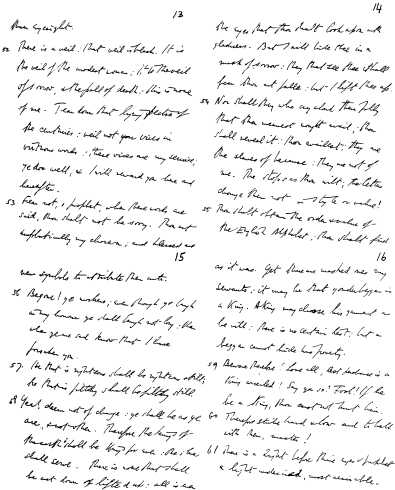 13
than eyesight.
52 There is a veil: that veil is black. It is
the veil of the modest woman; it is the veil
of sorrow, & the pall of death: this is none
of me. Tear down that lying spectre of
the centuries: veil not your vices in
virtuous words: these vices are my service;
ye do well, & I will reward you here and
hereafter.
53 Fear not, o prophet, when these words are
said, thou shalt not be sorry. Thou art
emphatically my chosen; and blessed are
14
the eyes that thou shalt look upon with
gladness. But I will hide thee in a
mask of sorrow: they that see thee shall
fear thou art fallen: but I lift thee up.
54 Nor shall they who cry aloud their folly
that thou meanest nought avail; thou
shall reveal it: thou availest: they are
the slaves of because: They are not of
me. The stops as thou wilt; the letters
change them not in style or value!
55 Thou shalt obtain the order & value of
the English Alphabet, thou shalt find
15
new symbols to attribute them unto.
56 Begone! ye mockers; even though ye laugh
in my honour ye shall laugh not long: then
when ye are sad know that I have
forsaken you.
57. He that is righteous shall be righteous still;
he that is filthy shall be filthy still
58 Yea! deem not of change: ye shall be as ye
are, & not other. Therefore the kings of
the earth shall be kings for ever: the slaves
shall serve. There is none that shall
be cast down or lifted up: all is ever
16
as it was. Yet there are masked ones my
servants: it may be that yonder beggar is
a King. A King may choose his garment as
he will: there is no certain test: but a
beggar cannot hide his poverty.
59 Beware therefore! Love all, lest perchance is a
King concealed! Say you so? Fool! If he
be a King, thou canst not hurt him.
60 Therefore strike hard & low and to hell
with them, master!
61 There is a light before thine eyes o prophet
a light undesired, most desirable.